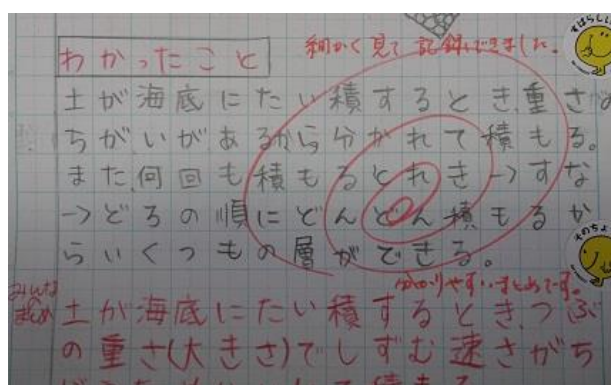 わかったこと
細かく見て記録できました。
すばらしい
土が海底にたい積するとき、重さの
ちがいがあるから分かれて積もる。
また、何回も積もるとれき→すな
→どろの順にどんどん積もるか
らいくつもの層ができる。
そのちょ
分かりやすいまとめです。
みんな
まとめ
土が海底にたい積するとき、つぶ
の重さ(大きさ)でしずむ速さがち